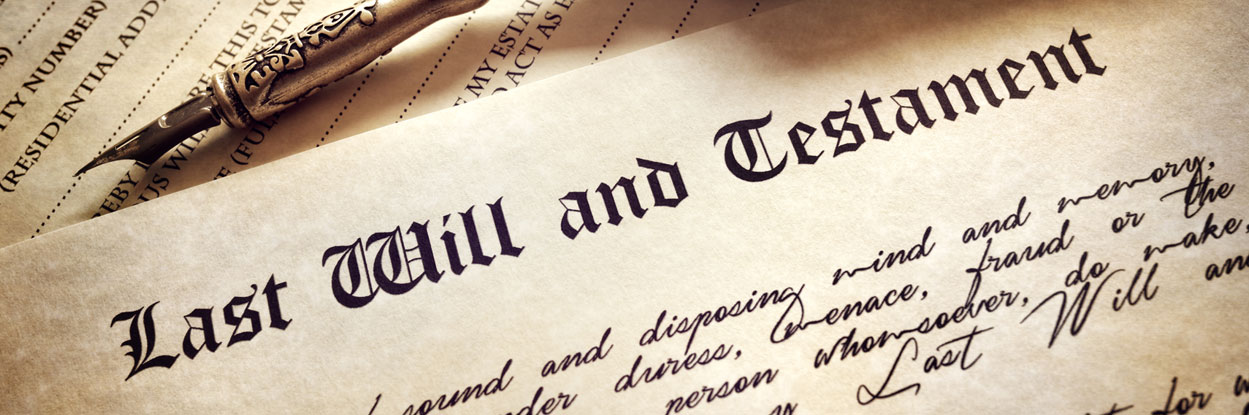 ITY NUMBER)
(RESIDENTIAL ADD
EBY
US WIL
RE THIS TO
TESTAM
E (FUL
MY ESTAT
D ACT AS E
Last Will and Testament
sound and disposing mind and memory,
der duress, menace, fraud or the
person whomsoever, do make,
y Last Will and
t for w